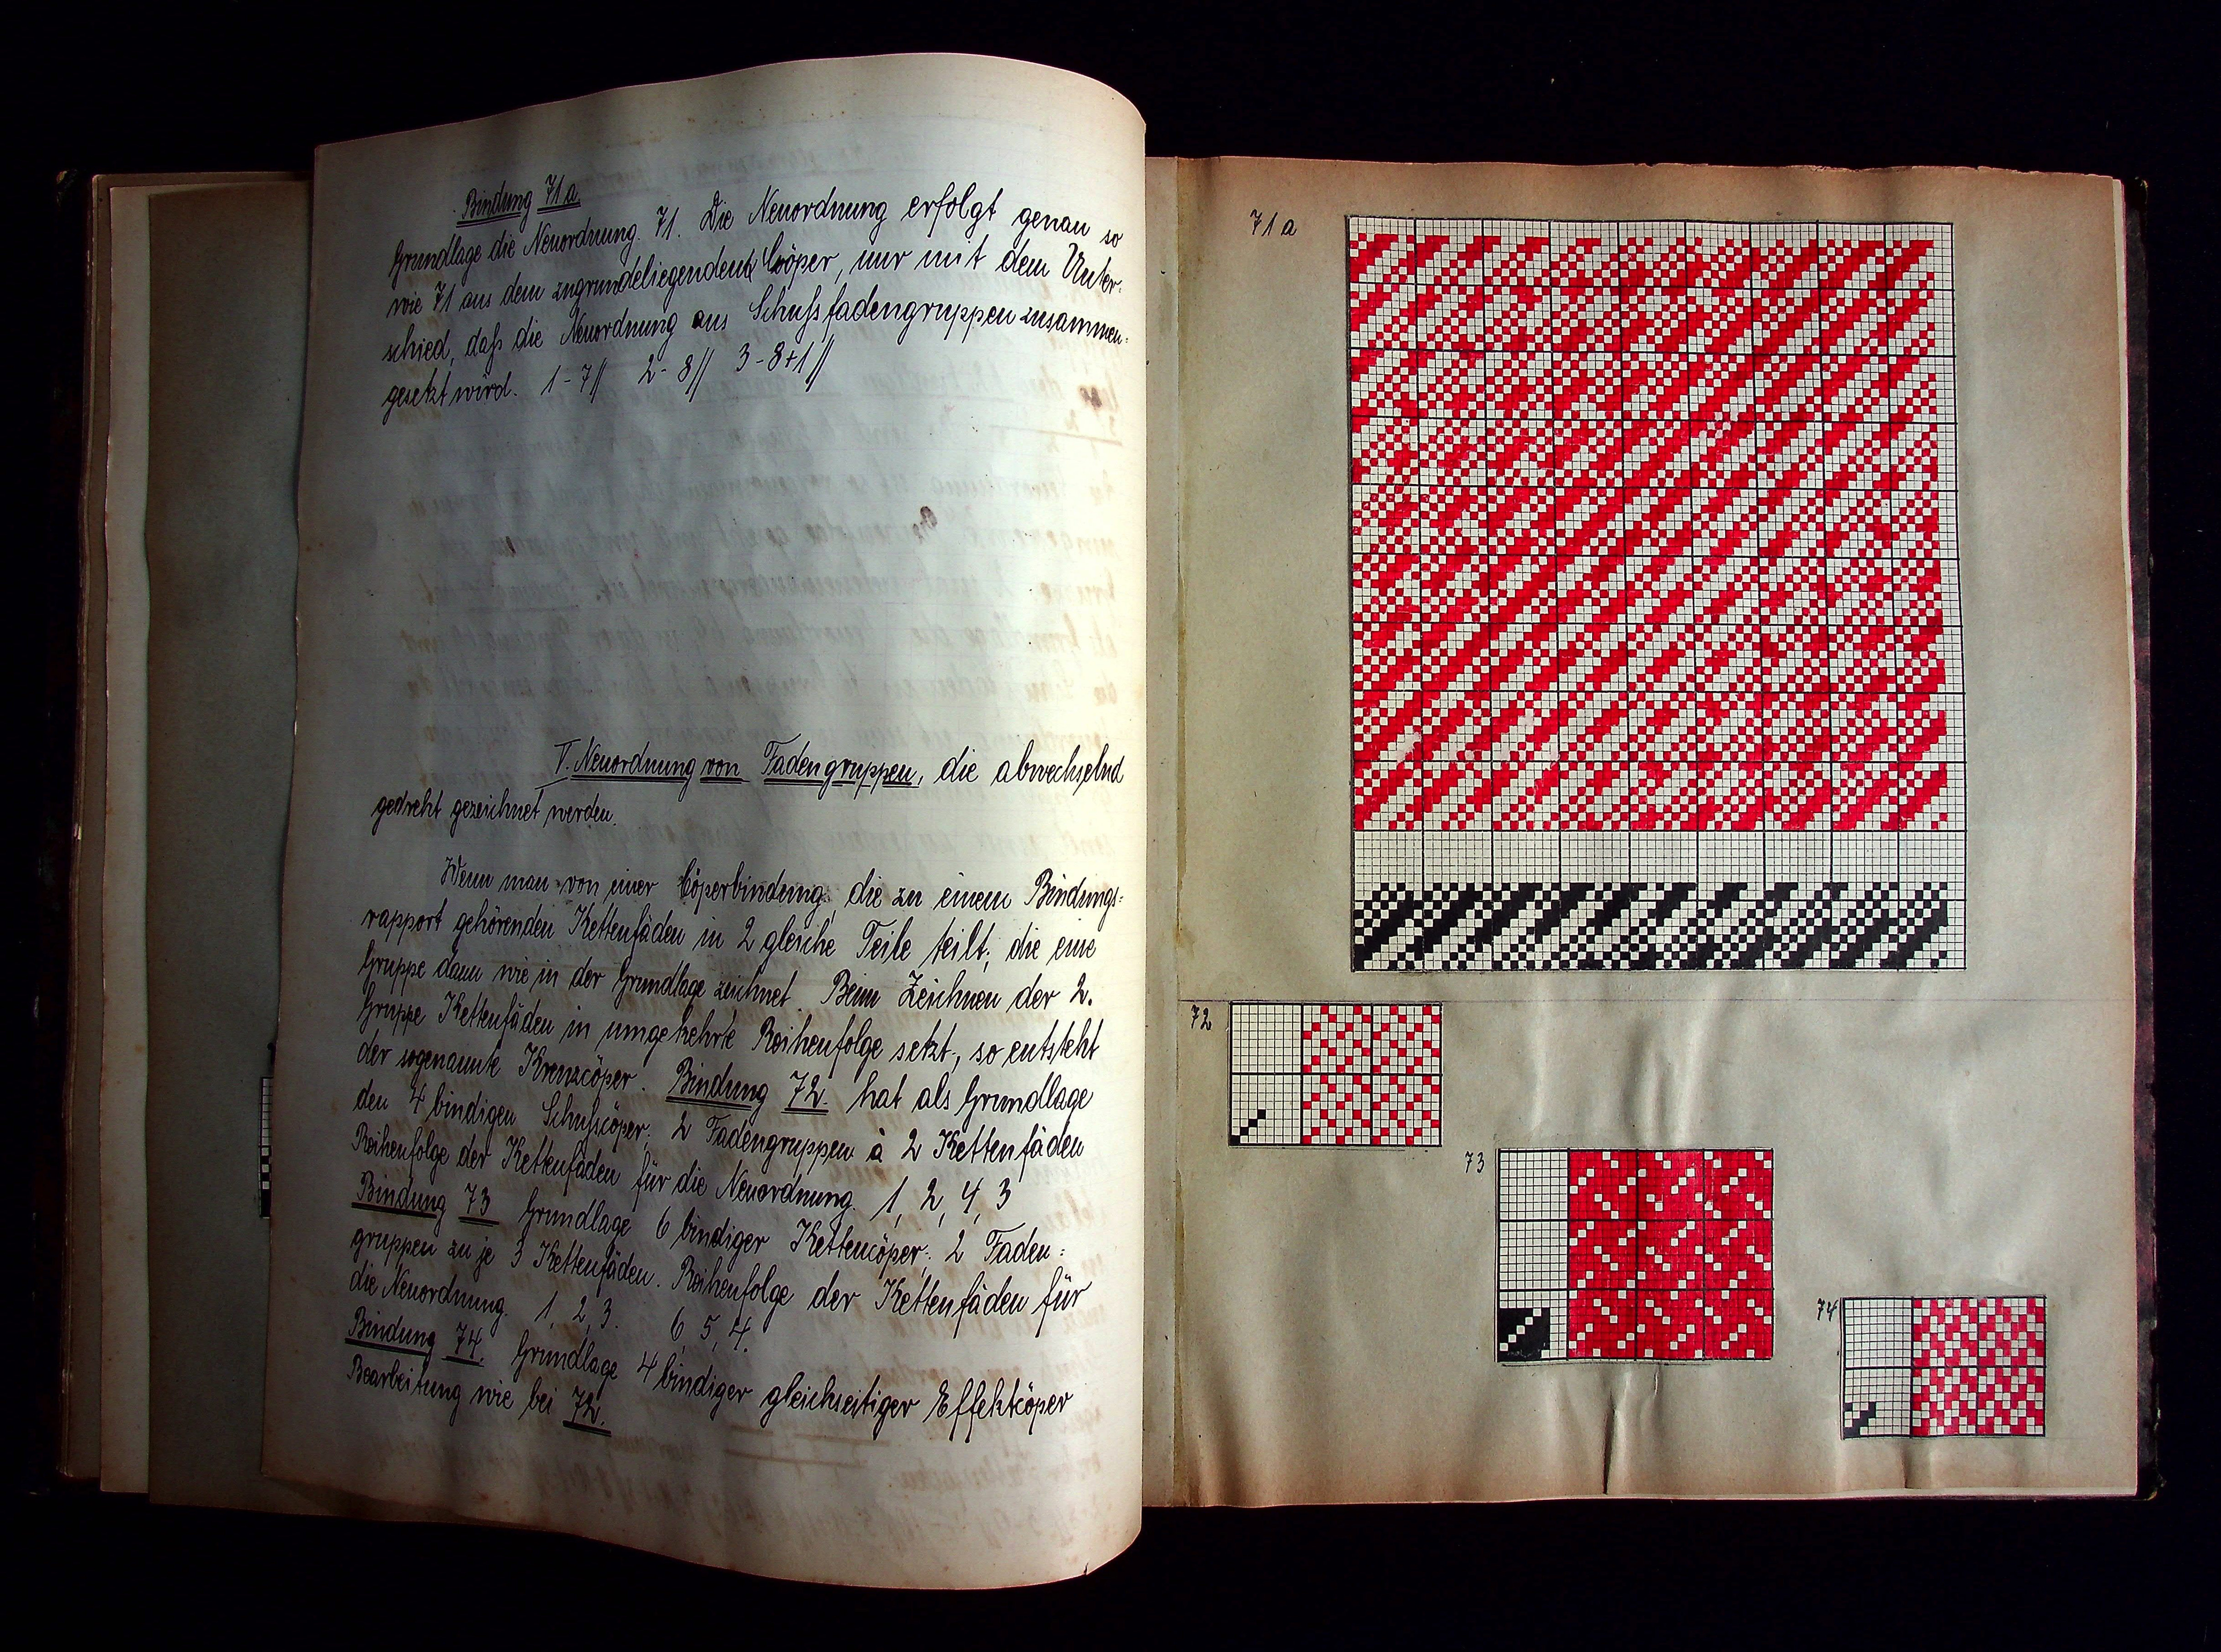 Bindung 71a.
Grundlage die Neuordnung. 71. Die Neuordnung erfolgt genau so
wie 71 aus dem zugrundeliegenden Cöper, nur mit dem Unter-
schied, daß die Neuordnung aus Schußfadengruppen zusammen-
gesetzt wird. 1-7// 2-8// 3-8+1//
V. Neuordnung von Fadengruppen, die abwechselnd
gedreht gezeichnet werden.
Wenn man von einer Cöperbindung, die zu einem Bindungs-
rapport gehörenden Kettenfäden in 2 gleiche Teile teilt; die eine
Gruppe dann wie in der Grundlage zeichnet. Beim Zeichnen der 2.
Gruppe Kettenfäden in umgekehrte Reihenfolge setzt, so entsteht
der sogenannte Kreuzcöper. Bindung 72. hat als Grundlage
den 4 bindigen Schußcöper. 2 Fadengruppen à 2 Kettenfäden
Reihenfolge der Kettenfäden für die Neuordnung. 1, 2, 4, 3
Bindung 73 Grundlage 6 bindiger Kettencöper; 2 Faden-
gruppen zu je 3 Kettenfäden. Reihenfolge der Kettenfäden für
die Neuordnung. 1, 2, 3. 6, 5, 4.
Bindung 74. Grundlage 4 bindiger gleichseitiger Effektcöper
Bearbeitung wie bei 72.
71a
72
73
74